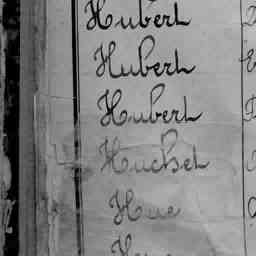 Hubert
Hubert
Hubert
Huchet
Hue